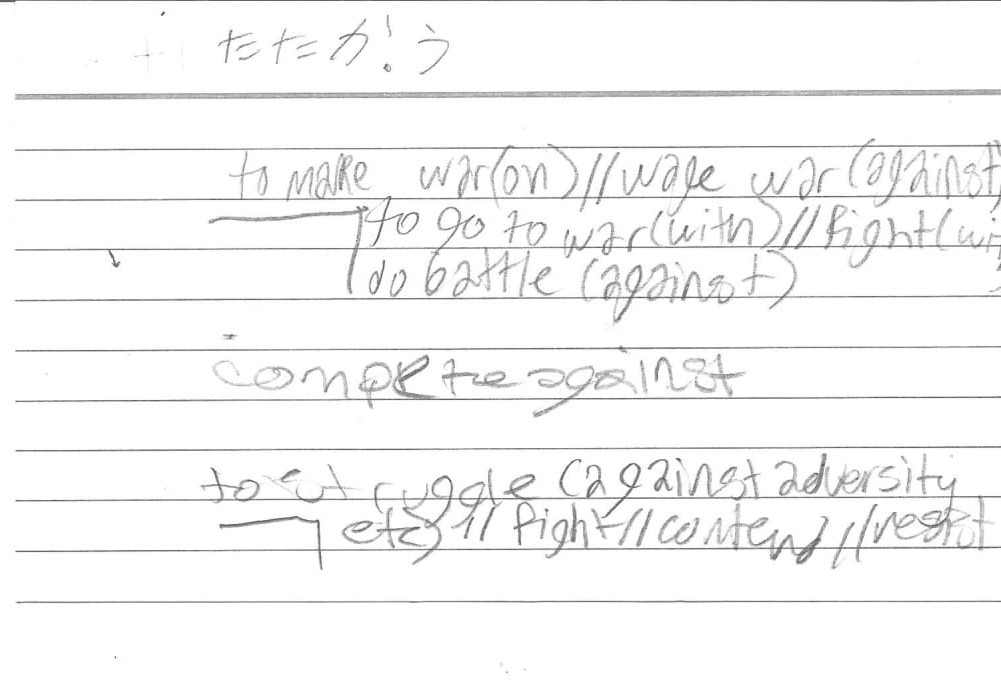 たたかう
to make war(on)//wage war(against)
to go to war(with)//fight(wi
do battle (against)
compete against
to struggle (against adversity
etc)//fight//contend//resist